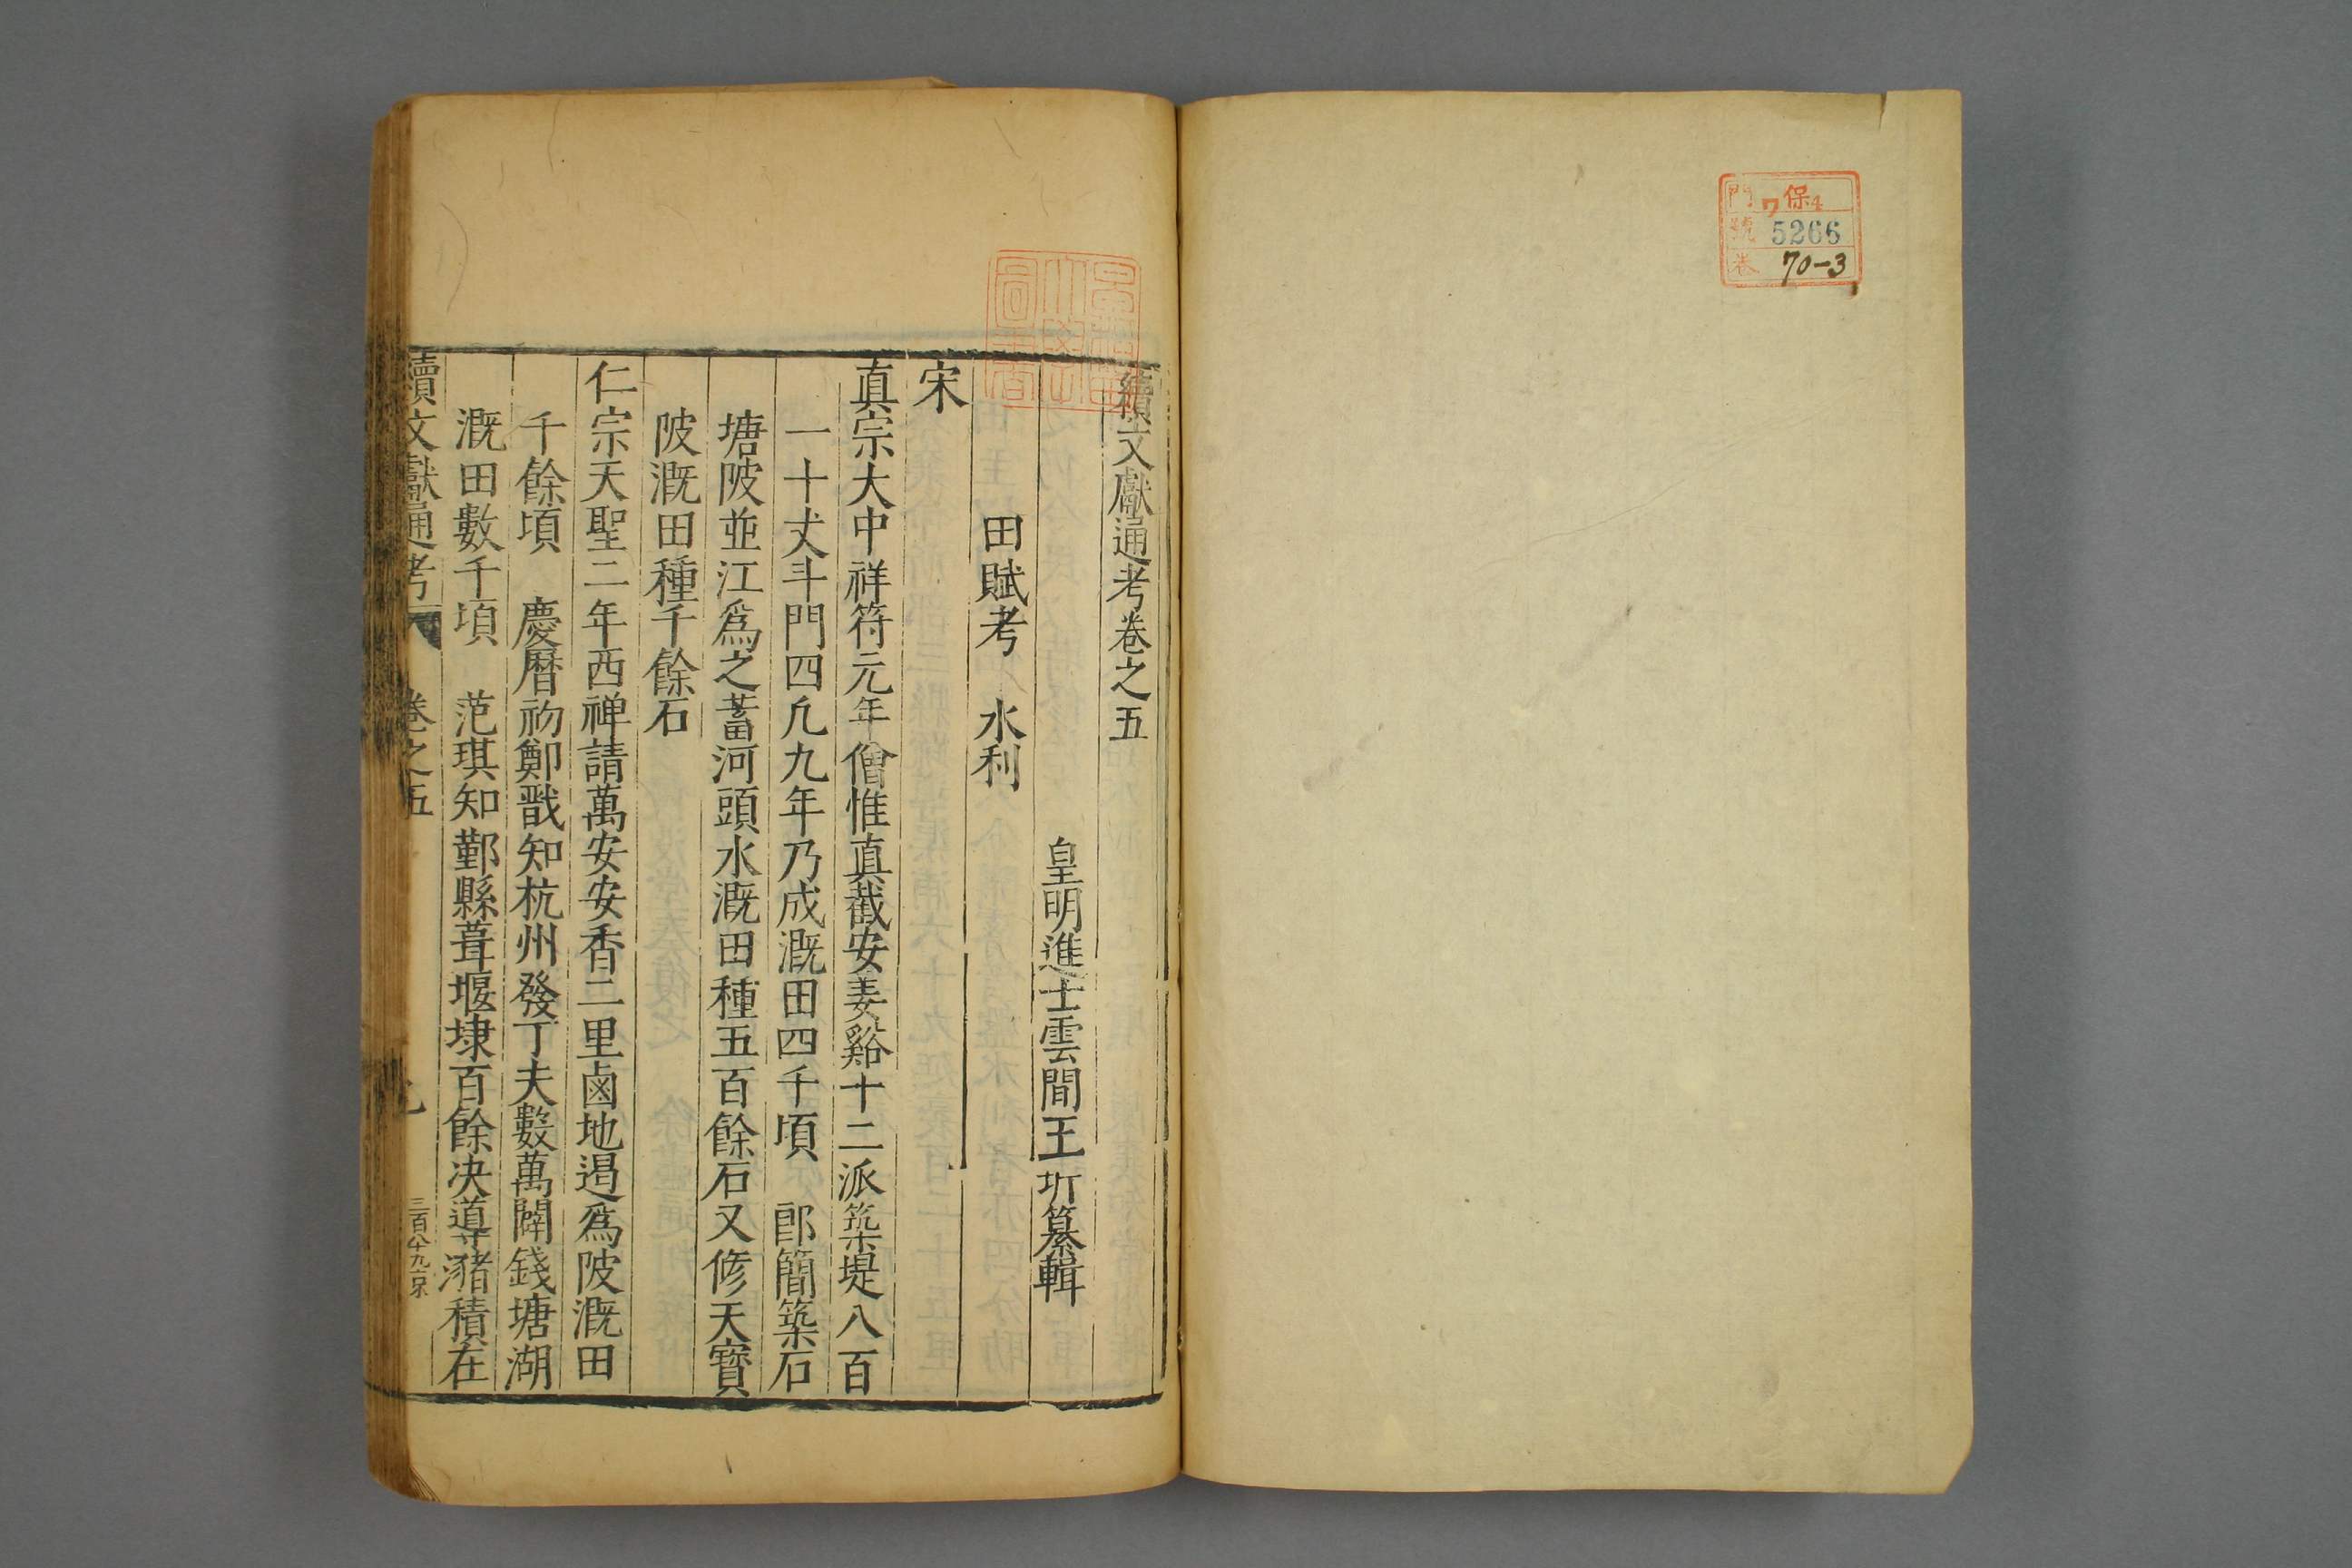 門 ワ 保4
號 5266
卷 70-3
續文獻通考卷之五
皇明進士雲間王圻纂輯
田賦考 水利
宋
真宗大中祥符元年僧惟真截安姜谿十二派築堤八百
一十丈斗門四凢九年乃成溉田四千頃 郎簡築石
塘陂並江爲之蓄河頭水溉田種五百餘石又修天寶
陂溉田種千餘石
仁宗天聖二年西禅請萬安安香二里鹵地遏爲陂溉田
千餘頃 慶曆初鄭戩知杭州發丁夫數萬闢錢塘湖
溉田數千頃 范琪知鄞縣葺堰埭百餘决導瀦積在
續文獻通考 卷之五